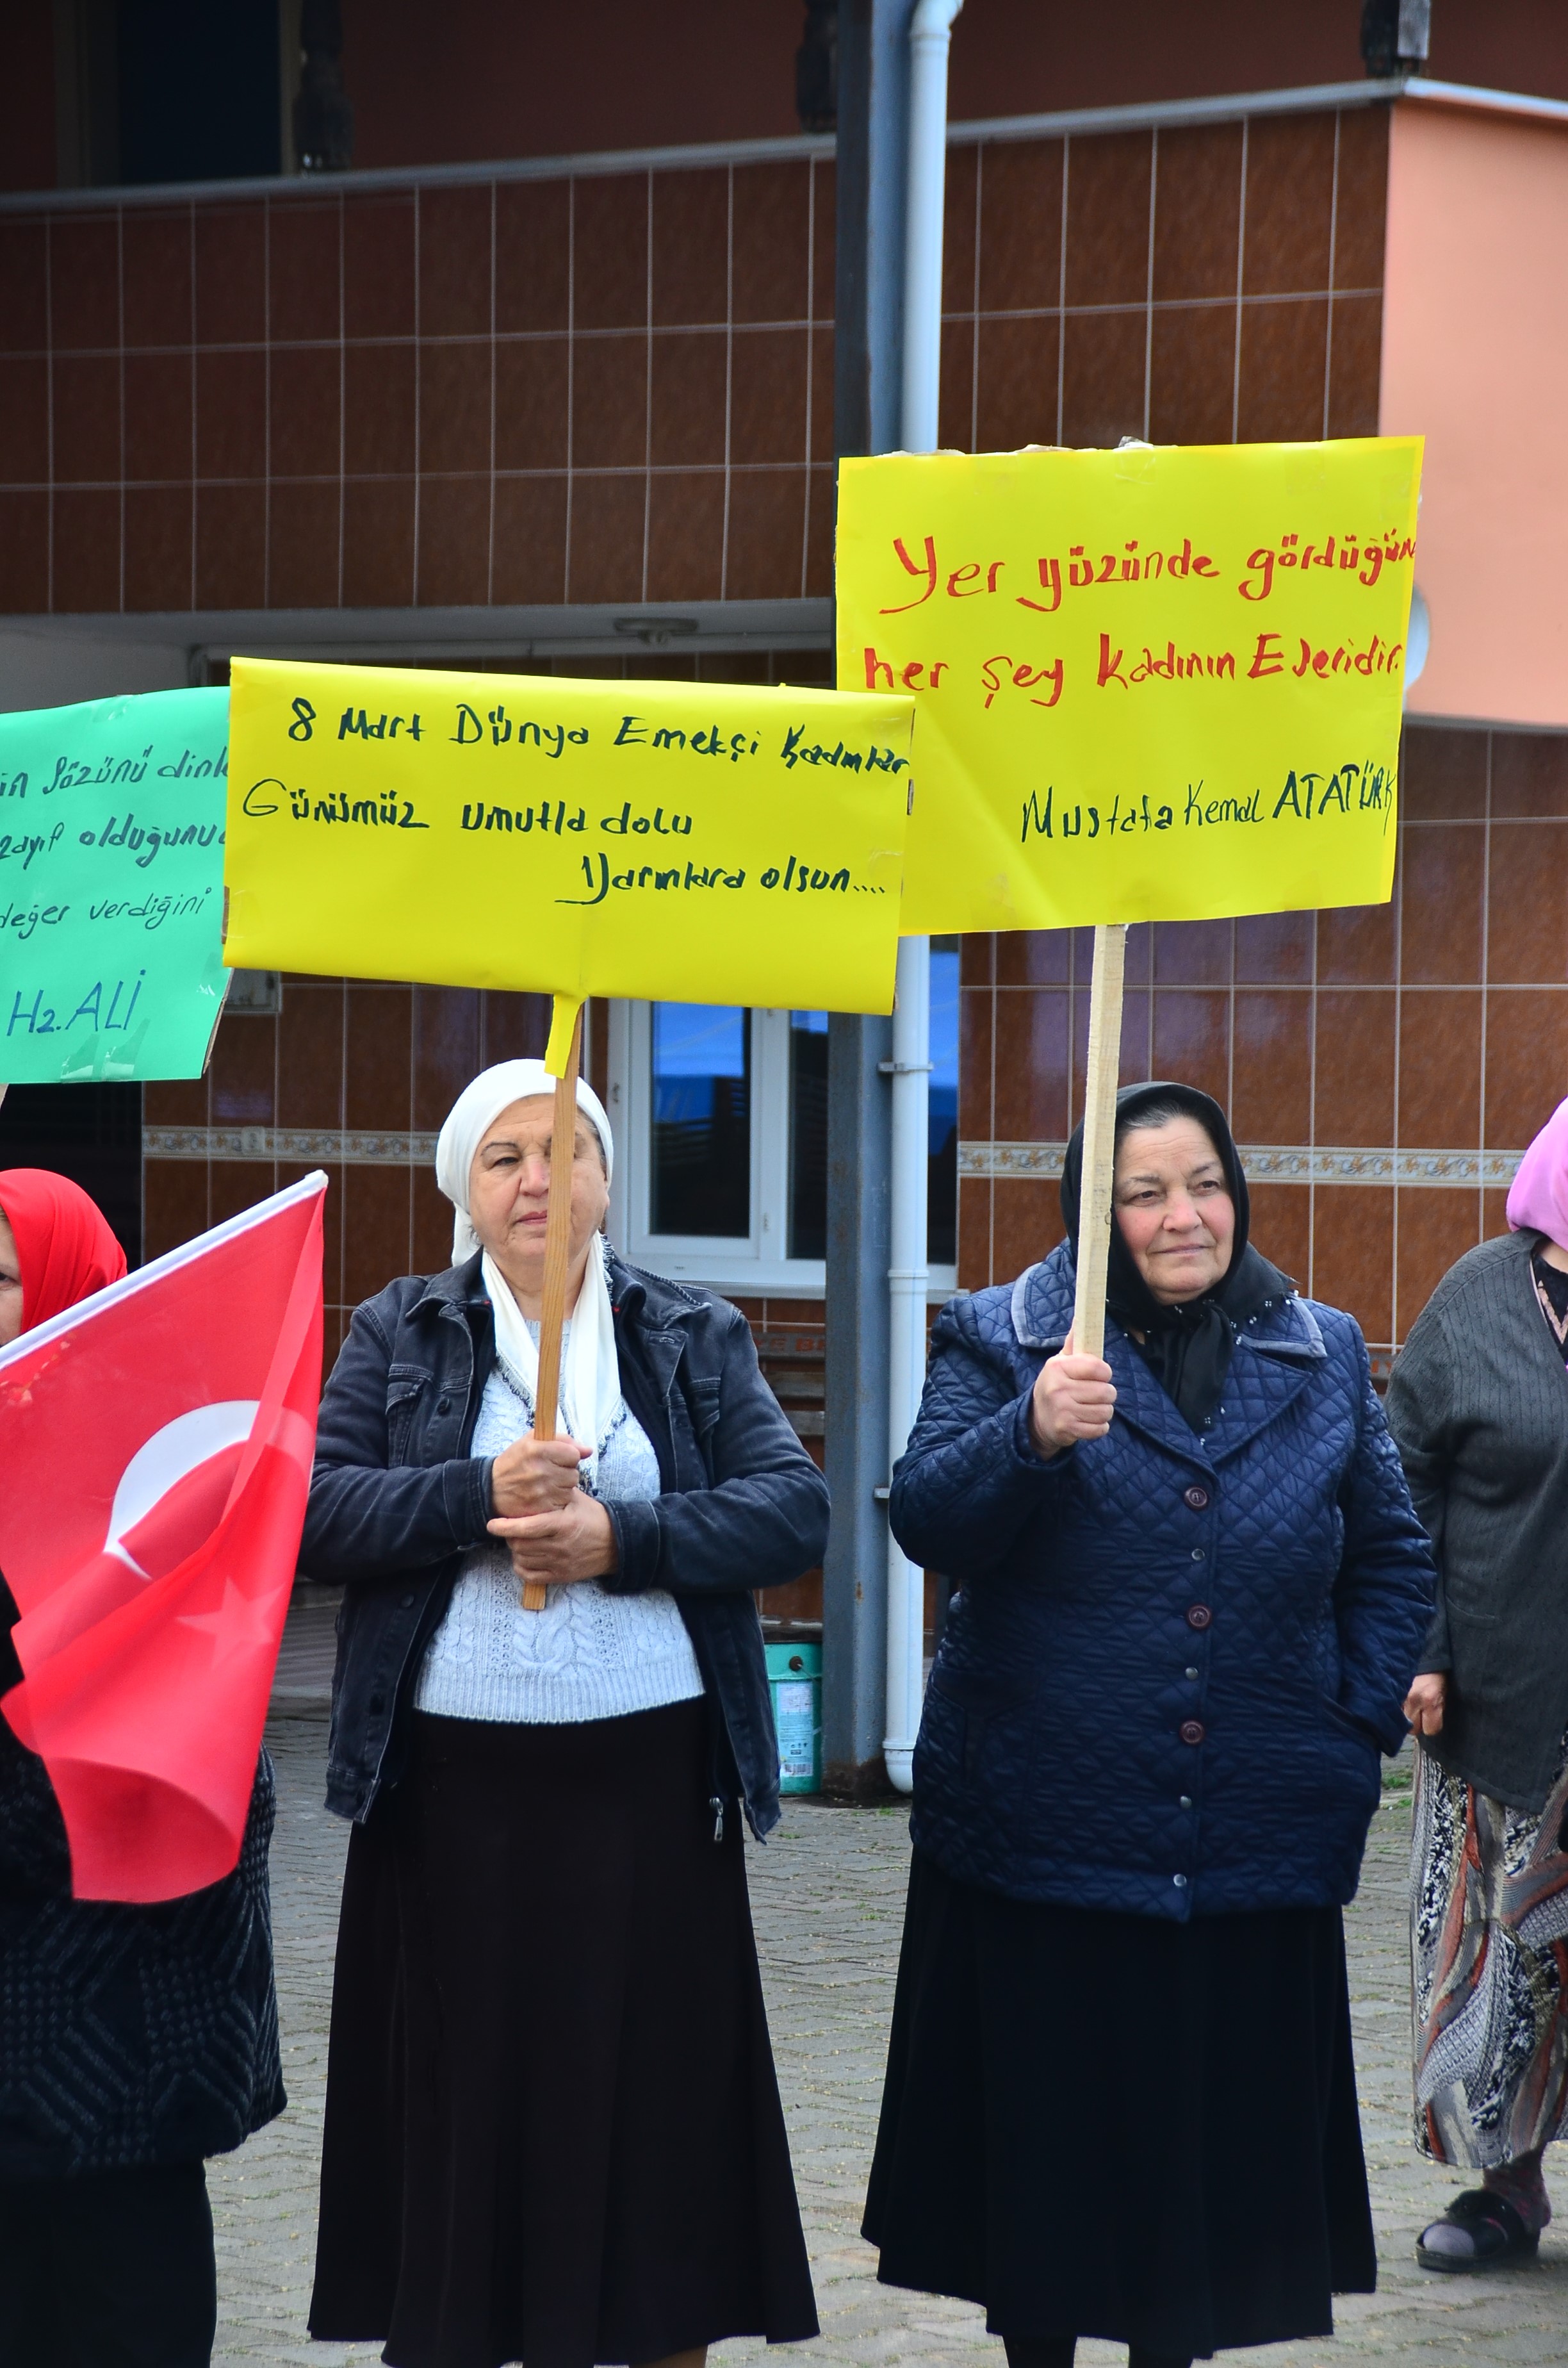 sözünü dink
zayıf olduğunu
değer verdiğini
Hz. ALİ
8 Mart Dünya Emekçi Kadınlar
Günümüz umutla dolu
Yarınlara olsun....
Yer yüzünde gördüğün
her şey kadının Eseridir.
Mustafa Kemal ATATÜRK